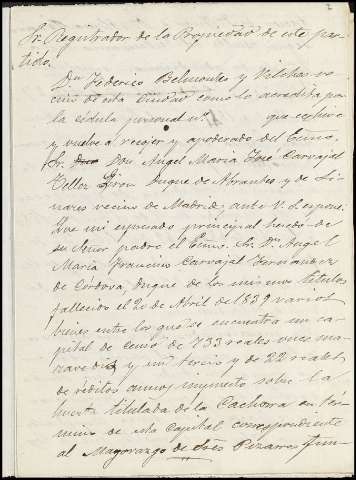 2
Sr. Registrador de la Propiedad de este par-
tido.
Dn. Federico Belmontes y Vilches ve-
cino de esta Ciudad como lo acredita por
la cédula personal nº. que exhive
y vuelve a recojer y apoderado del Excmo.
Sr. Don Angel Maria José Carvajal
Tellez Giron Duque de Abrantes y de Li-
nares vecino de Madrid, ante V. S. espone:
Que mi espresado principal heredó de
su Señor padre el Excmo. Sr. Dn. Angel
Maria Francisco Carvajal Fernandez
de Córdova, Duque de los mismos titulos
fallecido el 2 de Abril de 1839 varios
bienes entre los que se encuentra un ca-
pital de censo de 733 reales once ma-
ravedis y un tercio y de 22 reales
de réditos anuos impuesto sobre la
huerta titulada de la Cachorra en tér-
mino de esta Capital correspondiente
al Mayorazgo de Inés Pizarro fun-